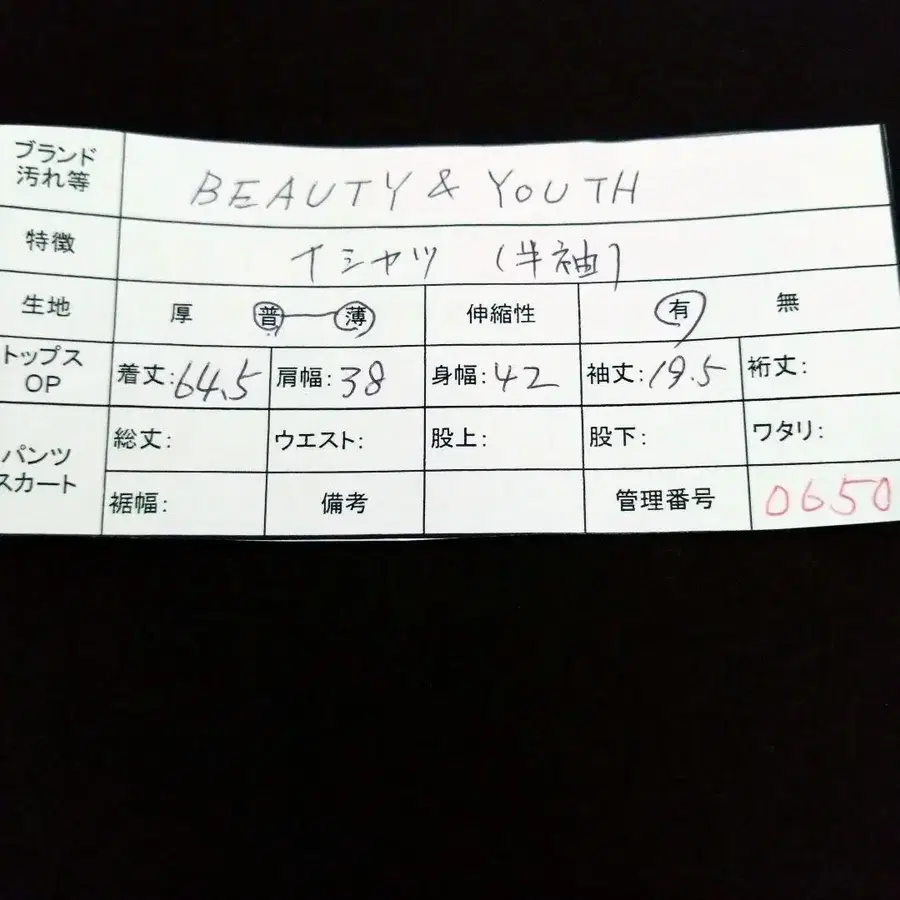 ブランド
汚れ等
BEAUTY & YOUTH
特徴
Tシャツ (半袖)
生地 厚 普 薄 伸縮性 有 無
トップス
OP
着丈:64.5 肩幅:38 身幅:42 袖丈:19.5 裄丈:
パンツ
スカート
総丈: ウエスト: 股上: 股下: ワタリ:
裾幅: 備考 管理番号 0650